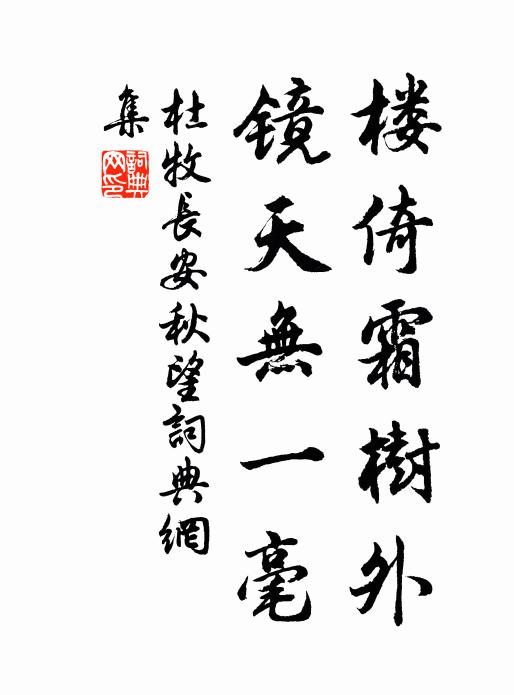 楼倚霜樹外
镜天無一毫
杜牧長安秋望詞典網
集
詞典
网印